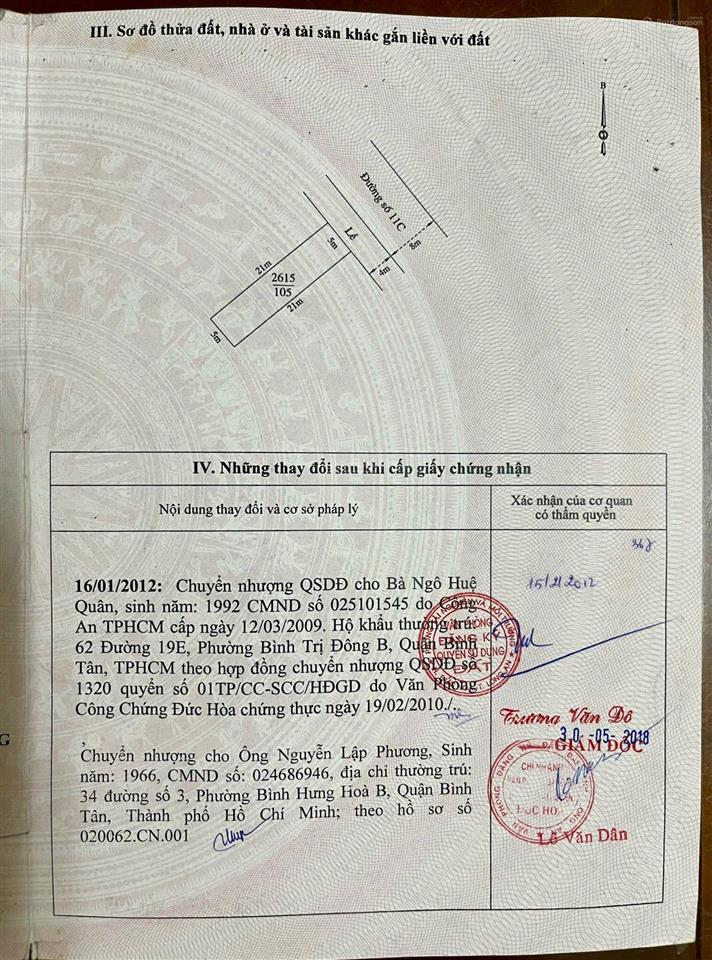 III. Sơ đồ thửa đất, nhà ở và tài sản khác gắn liền với đất
B
Đường số 11C
Lề
8m
4m
5m
21m
2615
105
21m
5m
IV. Những thay đổi sau khi cấp giấy chứng nhận
Nội dung thay đổi và cơ sở pháp lý
Xác nhận của cơ quan
có thẩm quyền
16/01/2012: Chuyển nhượng QSDĐ cho Bà Ngô Huệ
Quân, sinh năm: 1992 CMND số 025101545 do Công
An TPHCM cấp ngày 12/03/2009. Hộ khẩu thường trú:
62 Đường 19E, Phường Bình Trị Đông B, Quận Bình
Tân, TPHCM theo hợp đồng chuyển nhượng QSDĐ số
1320 quyển số 01TP/CC-SCC/HĐGD do Văn Phòng
Công Chứng Đức Hòa chứng thực ngày 19/02/2010./.
15/2/2012
VĂN PHÒNG
ĐĂNG KÝ
QUYỀN SỬ DỤNG
ĐẤT
Trương Văn Đô
30-05-2018
GIÁM ĐỐC
Chuyển nhượng cho Ông Nguyễn Lập Phương, Sinh
năm: 1966, CMND số: 024686946, địa chỉ thường trú:
34 đường số 3, Phường Bình Hưng Hoà B, Quận Bình
Tân, Thành phố Hồ Chí Minh; theo hồ sơ số
020062.CN.001
CHI NHÁNH
Lê Văn Dân